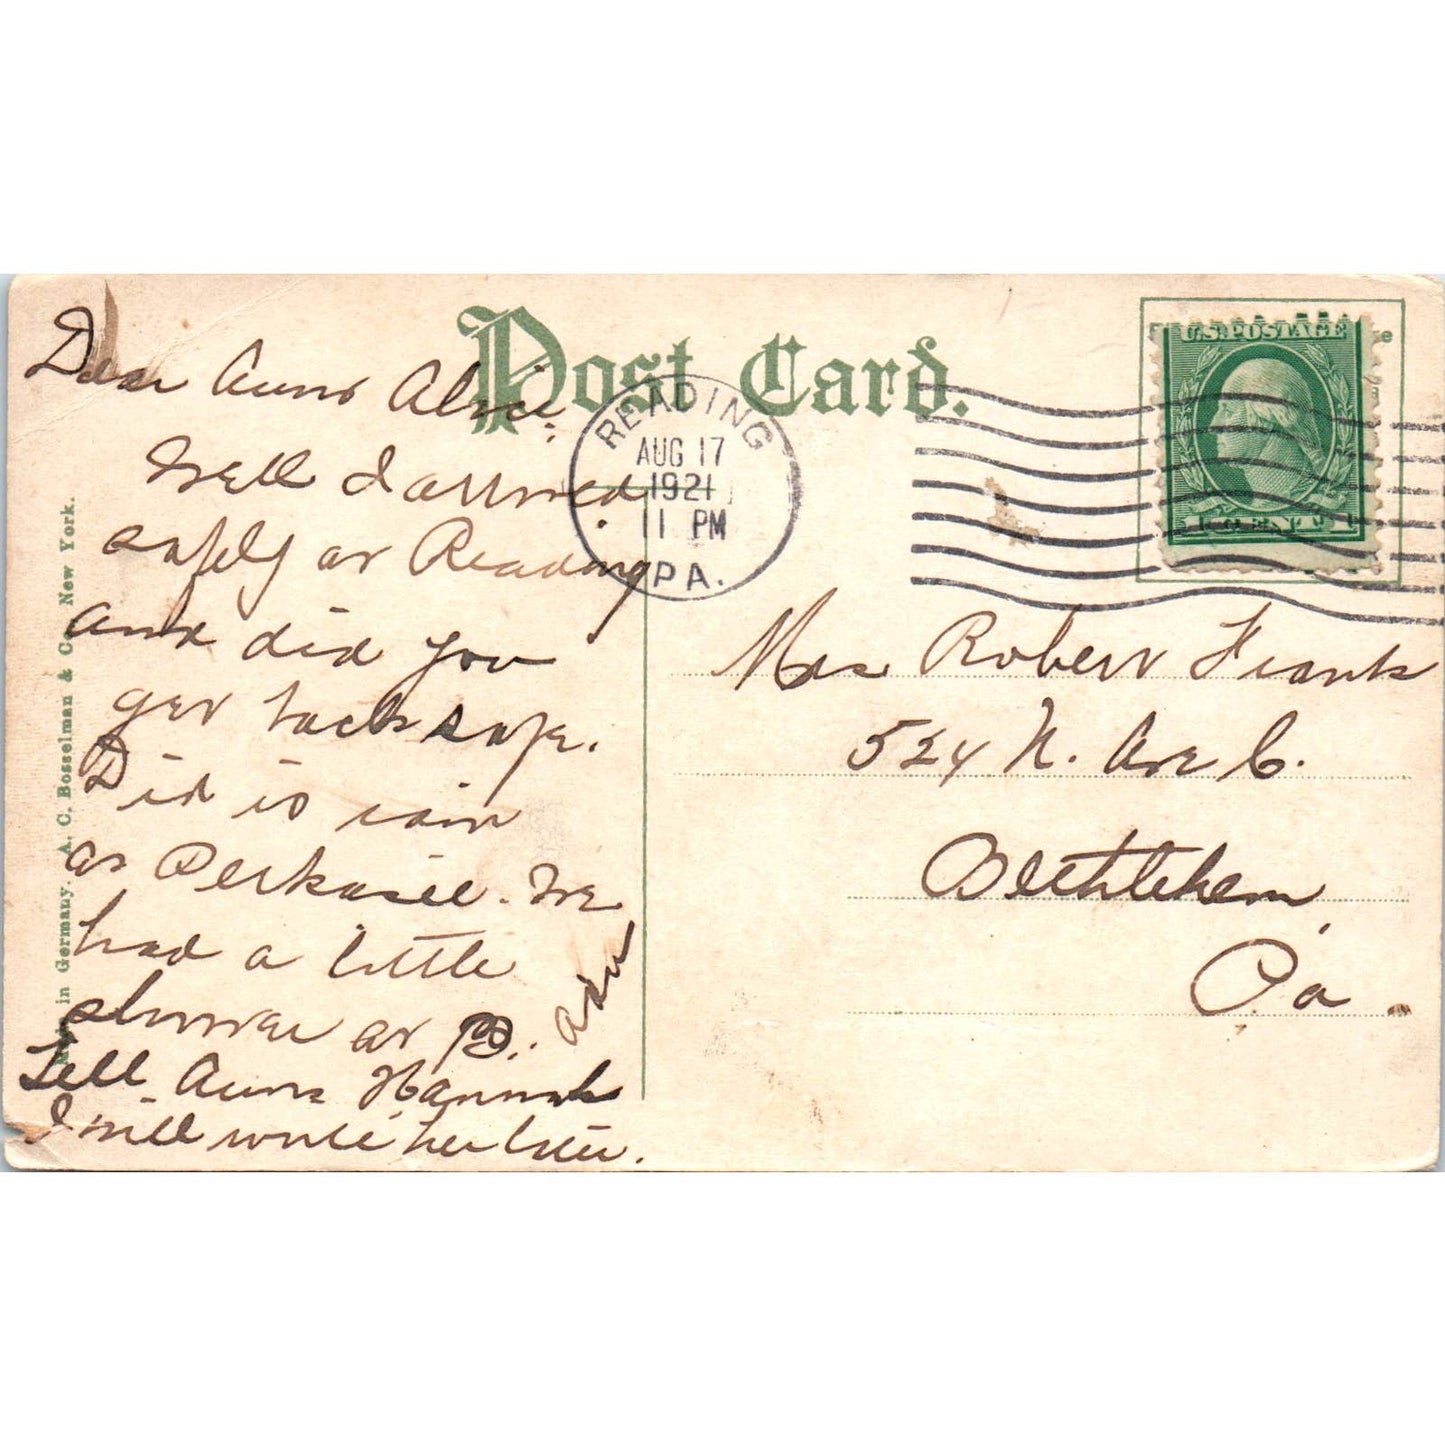 Post Card.
READING
AUG 17
1921
11 PM
PA.
U.S. POSTAGE
Dear Aunt Alice:
Well I arrived
safely at Reading
and did you
get back safe.
Did it rain
at Perkasie. We
had a little
shower at P..
Tell Aunt Hannah
I will write her later.
Mrs Robert Frank
524 N. Ave C.
Bethlehem,
Pa.
in Germany. A. C. Bosselman & Co. New York.